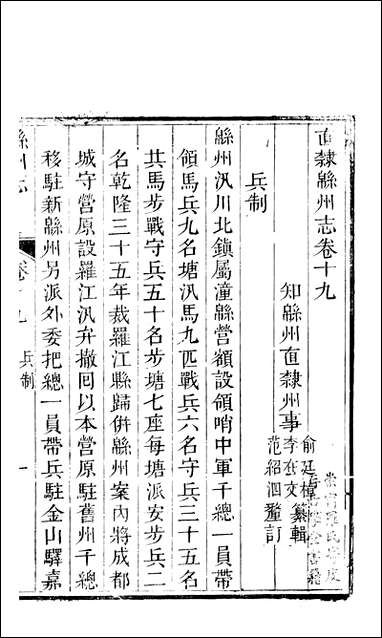 直隸緜州志卷十九
知緜州直隸州事
李在文
范紹泗
纂輯
釐訂
兵制
緜州汛川北鎮屬潼緜營額設領哨中軍千總一員帶
領馬兵九名塘汛馬九匹戰兵六名守兵三十五名
共馬步戰守兵五十名步塘七座每塘派安步兵二
名乾隆三十五年裁羅江縣歸併緜州案內將成都
城守營原設羅江汛弁撤回以本營原駐舊州千總
移駐新緜州另派外委把總一員帶兵駐金山驛嘉
緜州志
卷十九
兵制
一